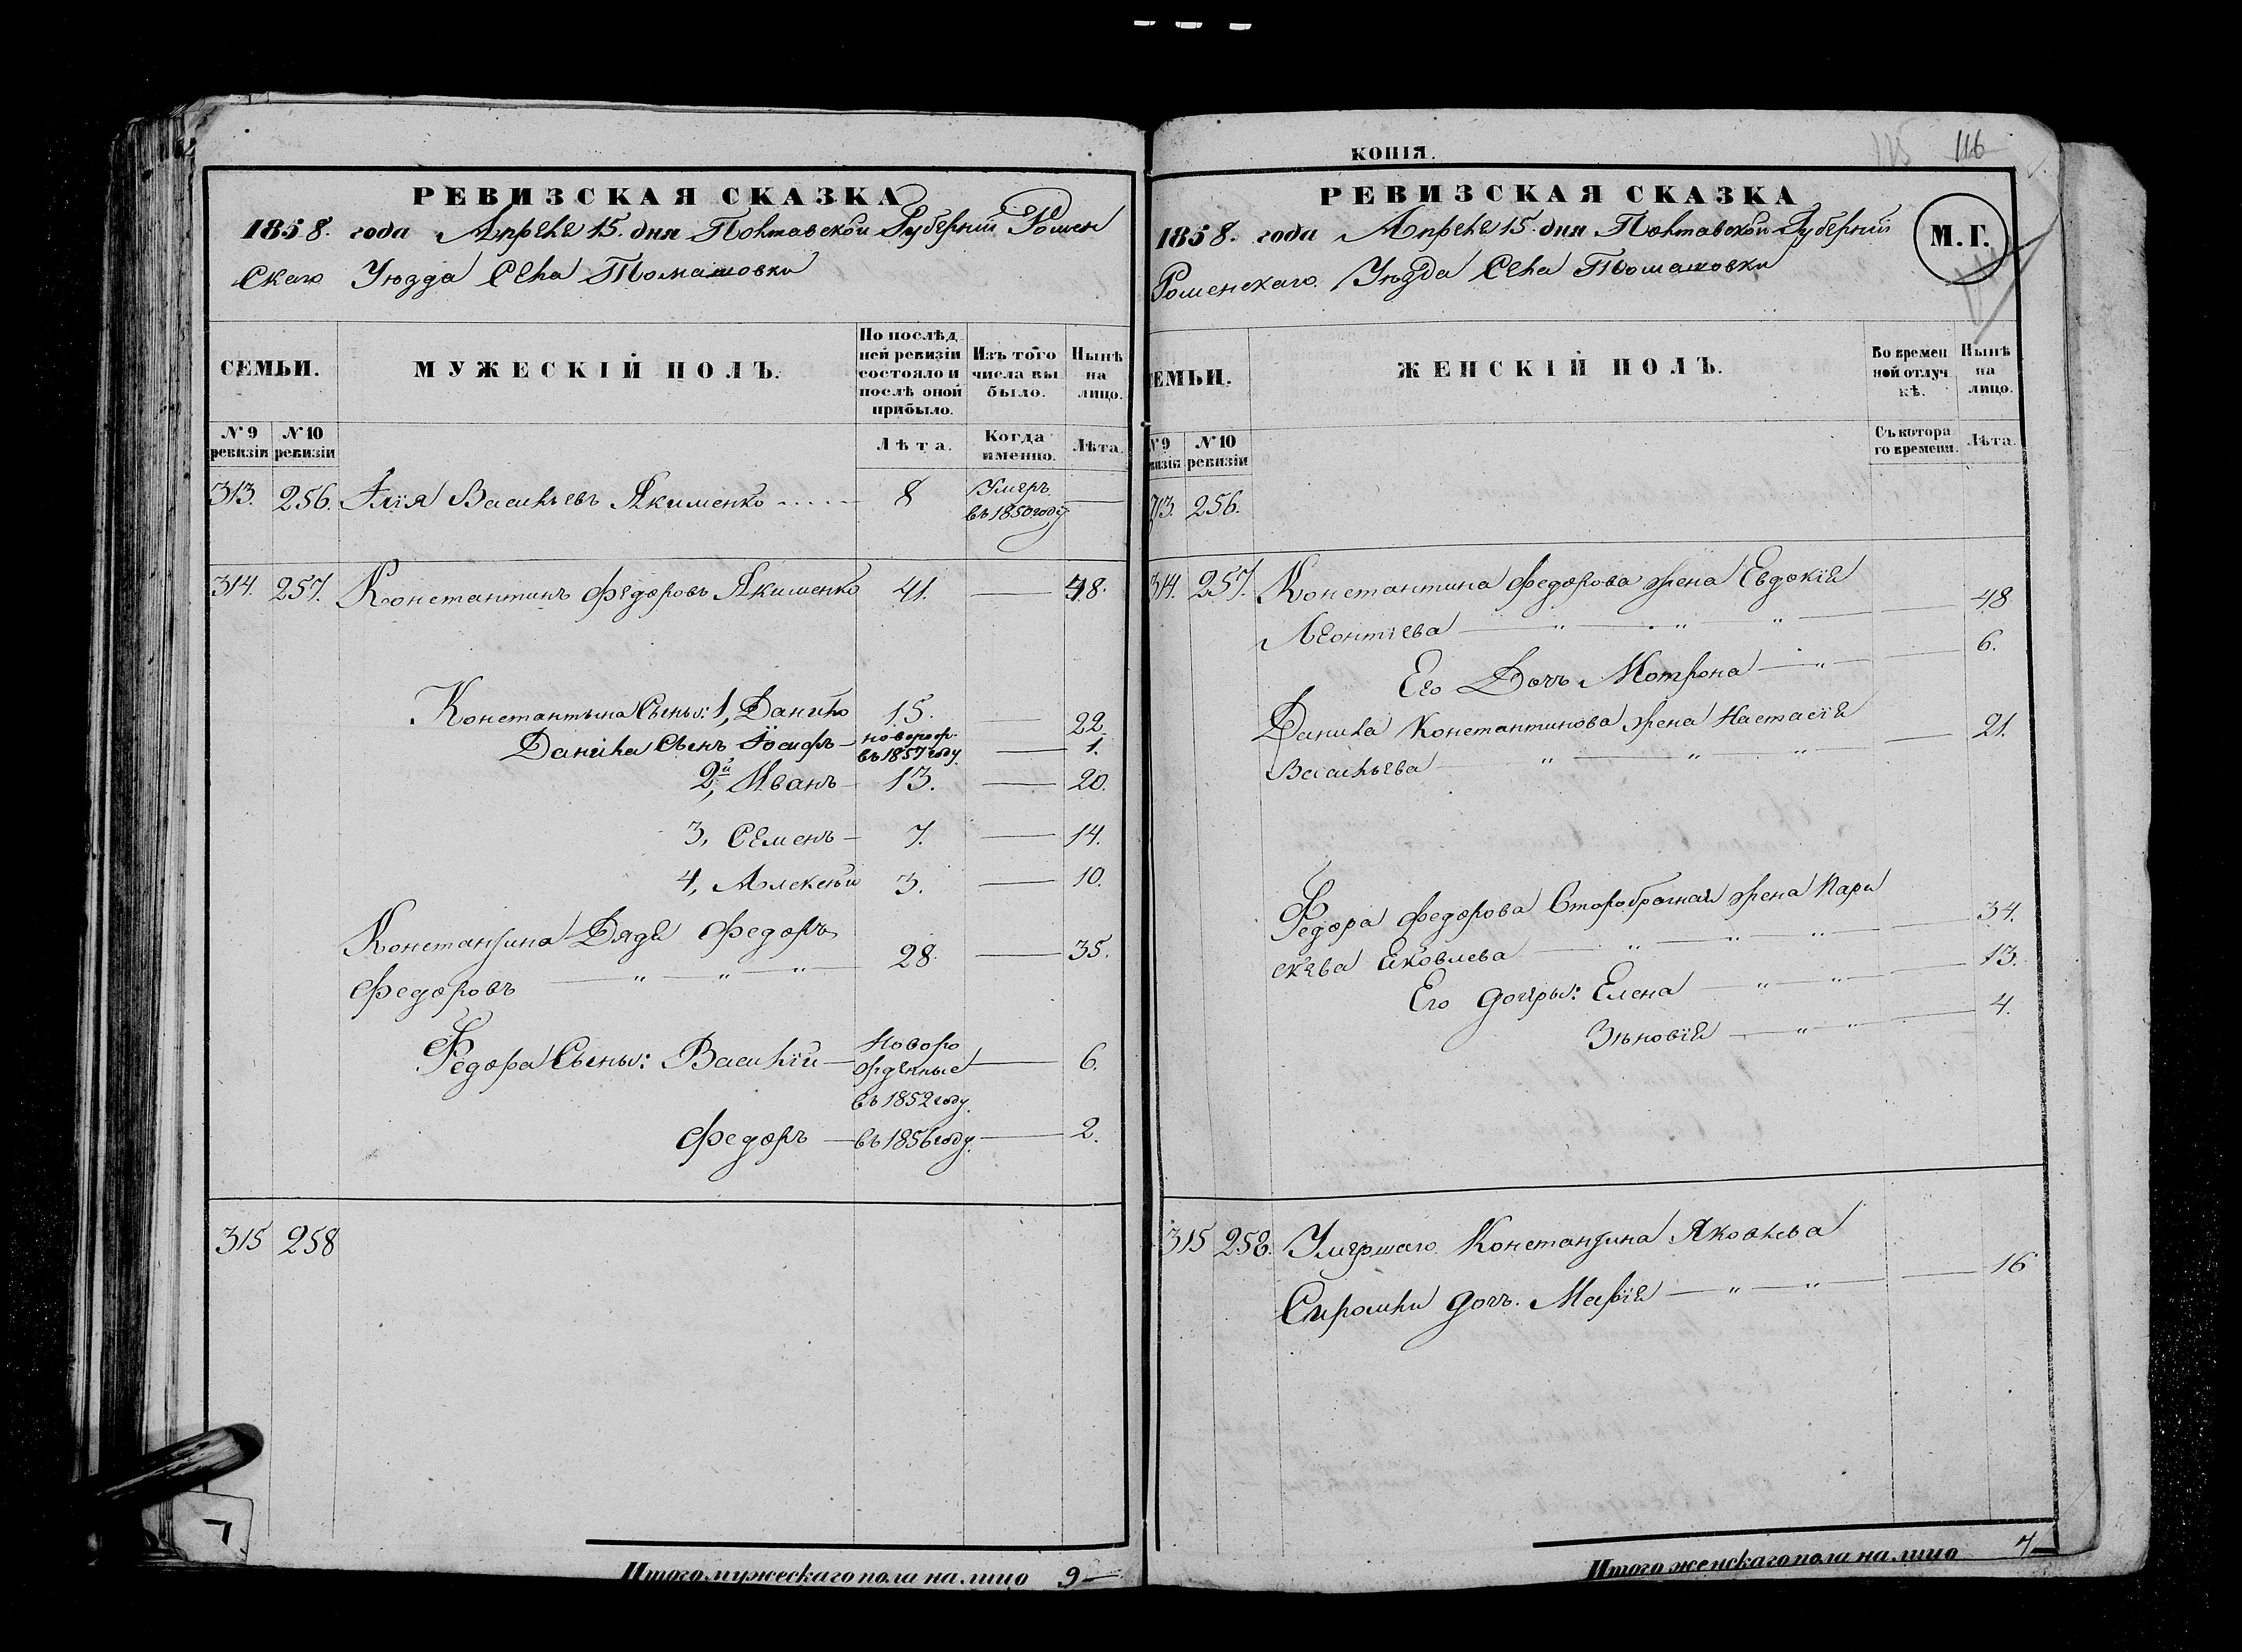 РЕВИЗСКАЯ СКАЗКА
1858. года Апреля 15. дня Полтавской Губернии Ромен
скаго Уѣзда Села Томашовки
СЕМЬИ.
МУЖЕСКІЙ ПОЛЪ.
По послѣд
ней ревизіи
состояло и
послѣ оной
прибыло.
Изъ того
числа вы
было.
Нынѣ
на
лицо.
№ 9
ревизіи
№ 10
ревизіи
Лѣта.
Когда
именно.
Лѣта.
313. 256. Илія Васильевъ Якименко 8 Умеръ
въ 1850 году
314. 257. Константинъ Федоровъ Якименко 41. — 48.
Константина Сыны: 1, Данило 15. — 22.
Данила Сынъ Іосифъ — новорож.
въ 1857 году. — 1.
2й, Иванъ — 13. — 20.
3, Семенъ — 7. — 14.
4, Алексѣй 3. — 10.
Константина Дядя Федоръ
Федоровъ — " — " — " — 28. — 35.
Федора Сыны: Василій — Новоро
жденные — 6.
въ 1852 году.
Федоръ — въ 1856 году. — 2.
315 258
Итого мужескаго пола на лицо 9—
КОПІЯ.
115 116
РЕВИЗСКАЯ СКАЗКА
1858. года Апреля 15. дня Полтавской Губерніи
Роменскаго Уѣзда Села Томашовки
М. Г.
ЕМЬИ.
ЖЕНСКІЙ ПОЛЪ.
Во времен
ной отлуч
кѣ.
Нынѣ
на
лицо.
№ 9
визіи
№ 10
ревизіи
Съ котора
го времени.
Лѣта.
313. 256.
314. 257. Константина Федорова жена Евдокія
Леонтіева — " — " — " — 48.
Его Дочь Мотрона — " — 6.
Данила Константинова жена Настасія
Васильева — " — " — " — 21.
Федора Федорова Второбрачная жена Пара
скева Яковлева — " — " — " — 34.
Его дочеры: Елена — " — " — 13.
Зѣновія — " — " — 4.
315 258. Умершаго Константина Яковлева
дочь. Марія — " — " — 16
Итого женскаго пола на лицо 7—